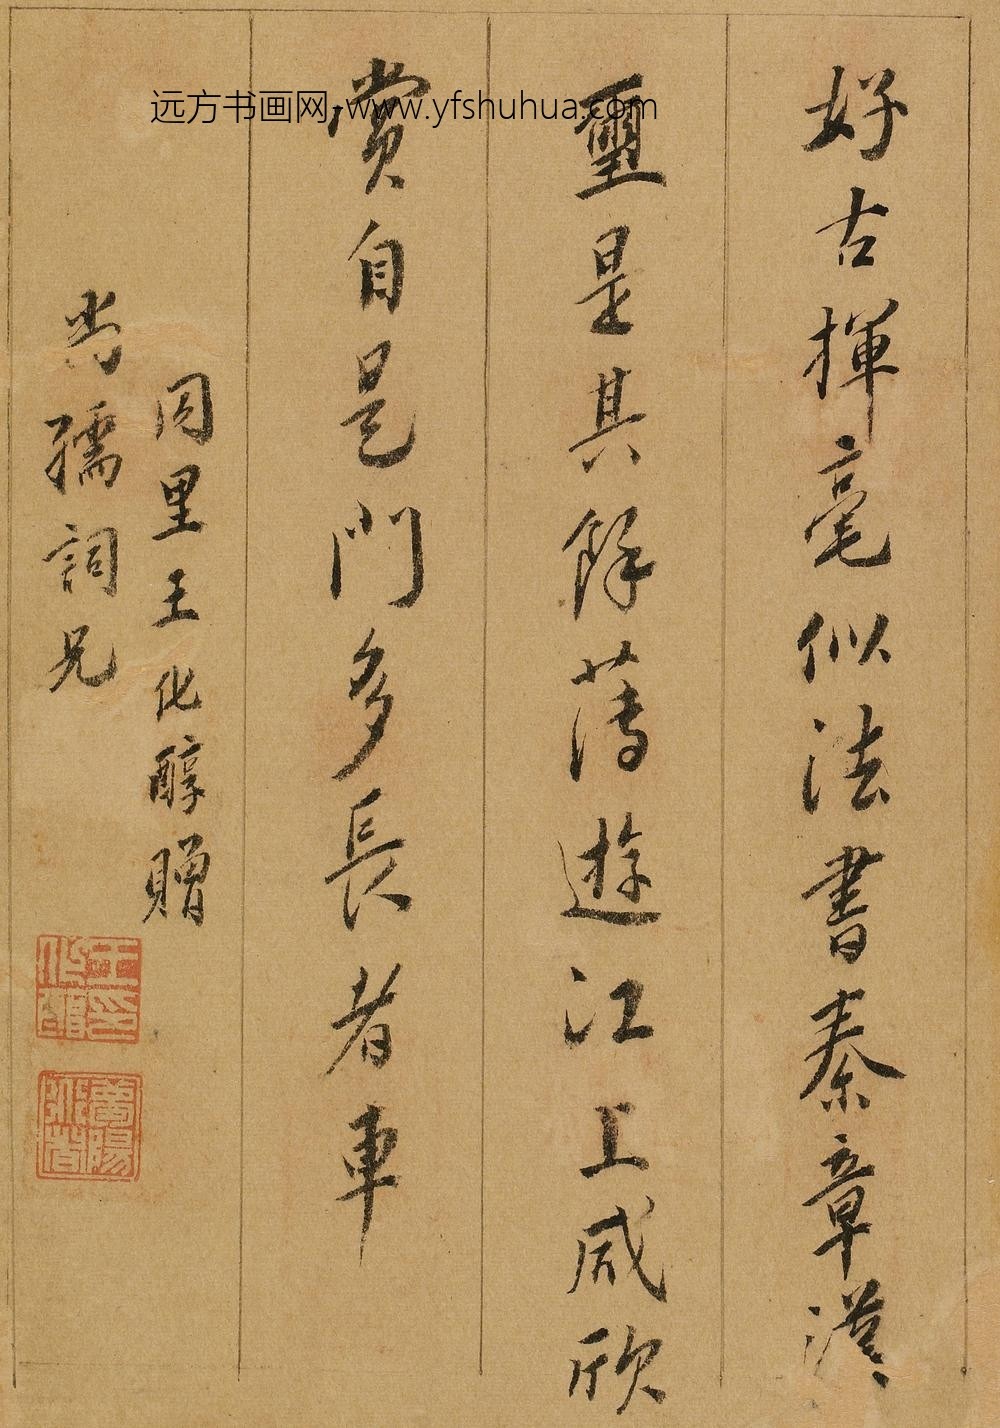 好古揮毫似法書秦章漢
璽是其餘薄遊江上咸欣
賞自是門多長者車
同里王化醇贈
尚孺詞兄
王印化醇
远方书画网 www.yfshuhua.com